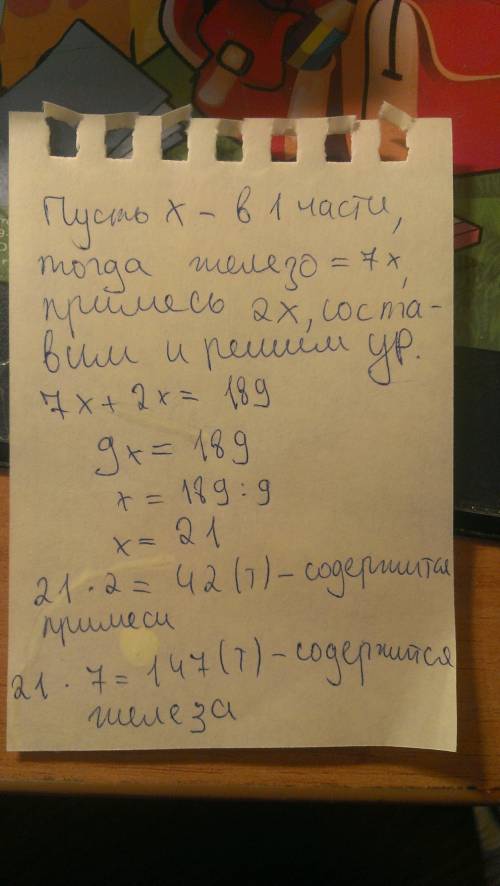 Пусть x – в 1 части,
тогда железо = 7x,
примесь 2x, соста-
вим и решим ур.
7x + 2x = 189
9x = 189
x = 189 : 9
x = 21
21 · 2 = 42 (т) – содержится
примеси
21 · 7 = 147 (т) – содержится
железа